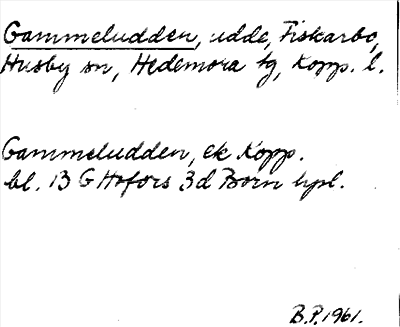 Gammeludden, udde, Fiskarbo,
Husby sn, Hedemora tg, Kopp. l.
Gammeludden, ek Kopp.
bl. 13 G Hofors 3d Born hpl.
B.P. 1961.